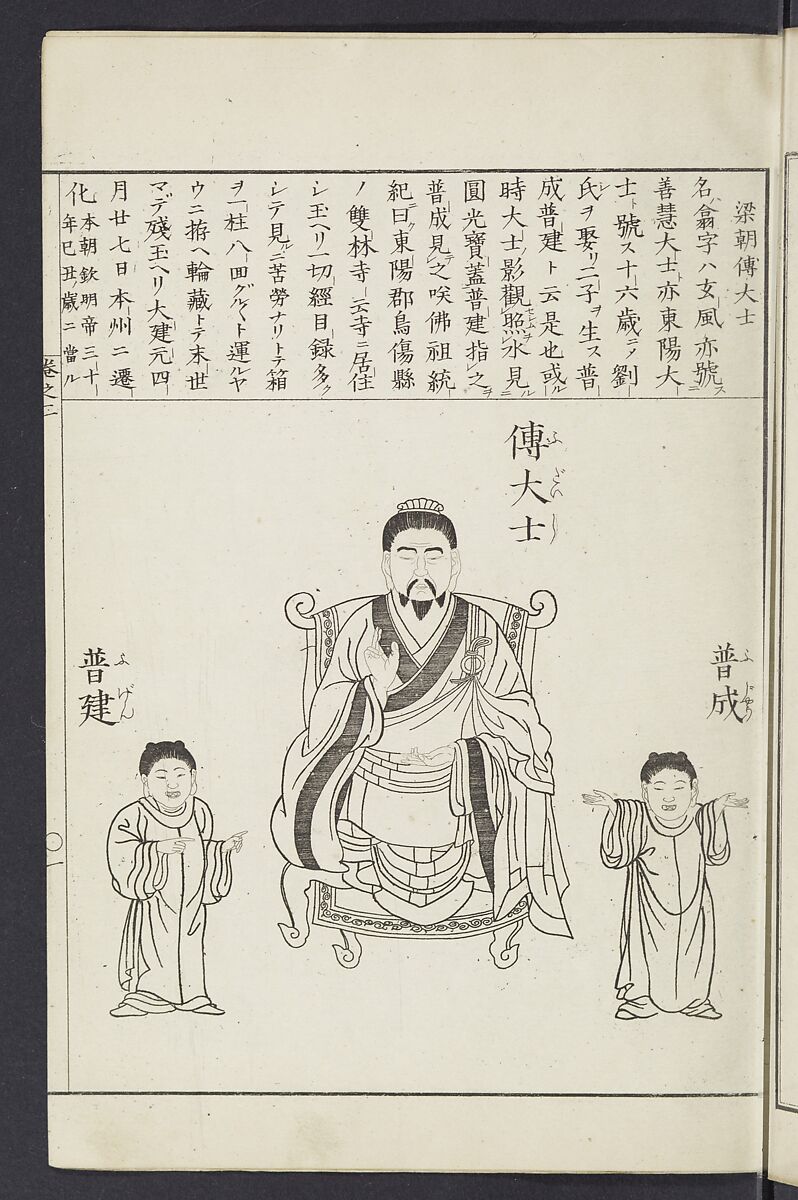 梁朝傅大士
名ハ翕字ハ玄風亦號ス
善慧大士ト亦東陽大
士ト號ス十六歳ニメ劉
氏ヲ娶リ二子ヲ生ス普
成普建ト云是也或ル
時大士ノ影觀照セシムルヲ水見ルニ
圓光寶蓋普建指シ之ヲ
普成見テ之咲佛祖統
紀ニ曰ク東陽郡烏傷縣
ノ雙林寺ト云寺ニ居住
シ玉ヘリ一切經目録多ク
シテ見ルニ苦勞ナリトテ箱
ヲ一柱八面グルクト運ルヤ
ウニ拵ヘ輪藏トテ末世
マデ殘玉ヘリ大建元四
月廿七日本州ニ遷
化本朝欽明帝三十
年巳丑ノ歳ニ當ル
傅大士
ふだいし
普成
ふじやう
普建
ふげん
卷之二